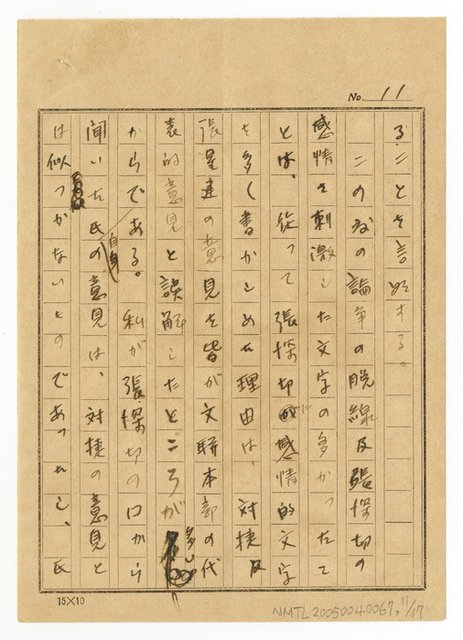 No. 11
ることを言明する。
この度の論争の脱線及張深切の
感情を刺激した文字の多かったこ
とは、従って張深切に感情的文字
を多く書かしめた理由は、対捷及
張星建の意見を皆が文聯本部の代
表的意見と誤解したところが多い
からである。私が張深切の口から
聞いた氏自身の意見は、対捷の意見と
は似つかないものであったし、氏
15×10
NMTL20050040067, 11/17